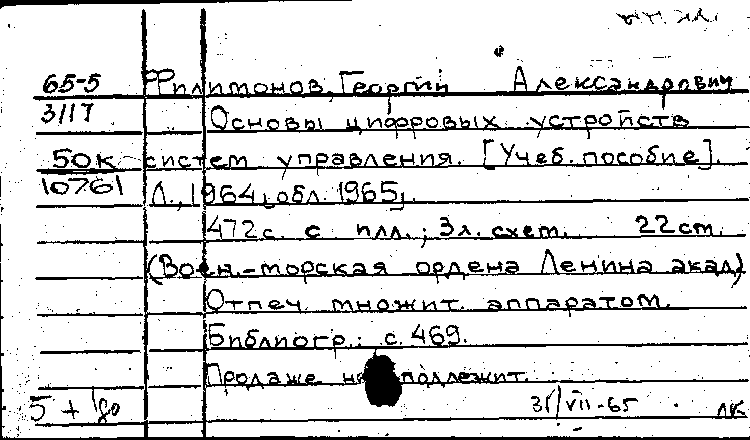 65-5 Филимонов, Георгий Александрович
3117 Основы цифровых устройств
50к систем управления. [Учеб. пособие].
10761 Л., 1964, обл. 1965,.
472 с. с илл.; 3 л. схем. 22 см.
(Воен.-морская ордена Ленина акад)
Отпеч. множит. аппаратом.
Библиогр.: с. 469.
Продаже не подлежит.
5 + 31/VII-65 ЛК